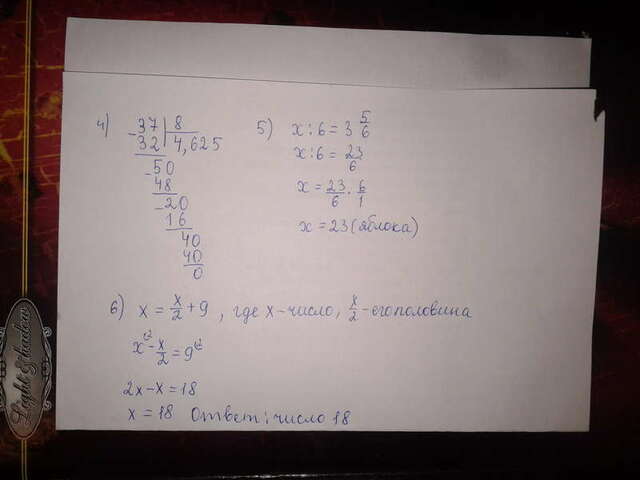 4) 37 | 8
- 32 | 4,625
- 50
48
- 20
16
40
40
0
5) x : 6 = 3 5/6
x : 6 = 23/6
x = 23/6 · 6/1
x = 23 (яблока)
6) x = x/2 + 9 , где x - число, x/2 - его половина
x^(2 - x/2 = 9^(2
2x - x = 18
x = 18 Ответ: число 18
Light & shadow